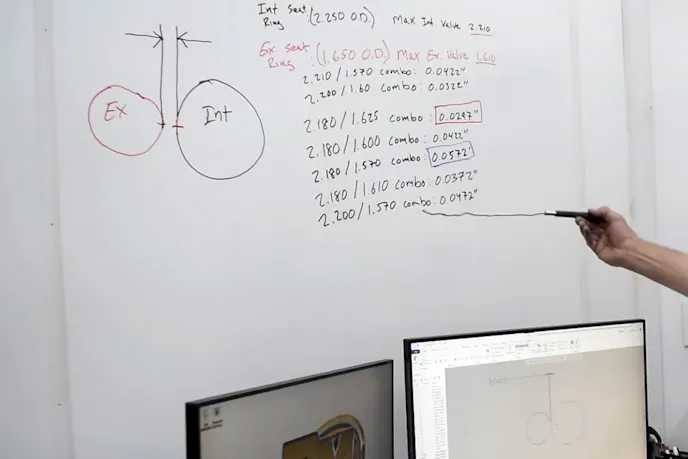 Int Seat Ring : (2.250 O.D.) Max Int. Valve 2.210
Ex Seat Ring : (1.650 O.D.) Max Ex. Valve 1.610
2.210/1.570 combo: 0.0422"
2.200/1.60 combo: 0.0322"
2.180/1.625 combo: 0.0297"
2.180/1.600 combo: 0.0422"
2.180/1.570 combo: 0.0572"
2.180/1.610 combo: 0.0372"
2.200/1.570 combo: 0.0472"
Ex
Int